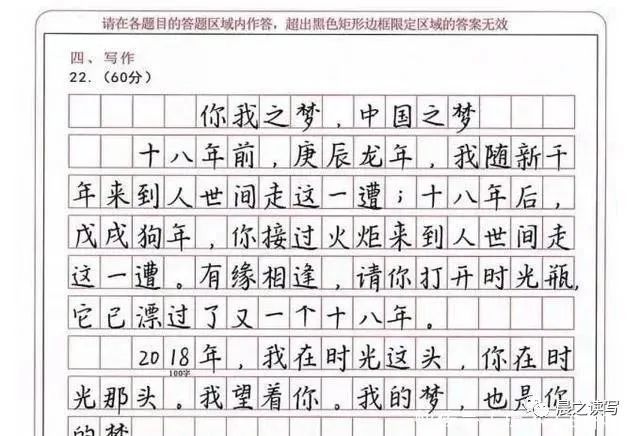 请在各题目的答题区域内作答，超出黑色矩形边框限定区域的答案无效
四、写作
22.（60分）
你我之梦，中国之梦
十八年前，庚辰龙年，我随新千
年来到人世间走这一遭；十八年后，
戊戌狗年，你接过火炬来到人世间走
这一遭。有缘相逢，请你打开时光瓶，
它已漂过了又一个十八年。
2018年，我在时光这头，你在时
100字
光那头。我望着你。我的梦，也是你
的梦
晨之读写